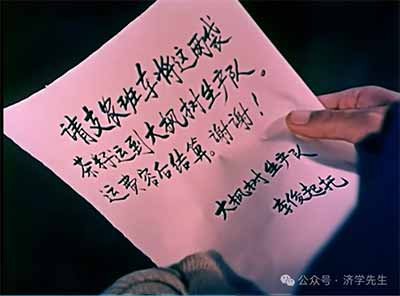 请支农班车将这两袋
茶籽运到大枫树生产队。
运费容后结算。谢谢！
大枫树生产队
李俊起托
公众号 · 济学先生